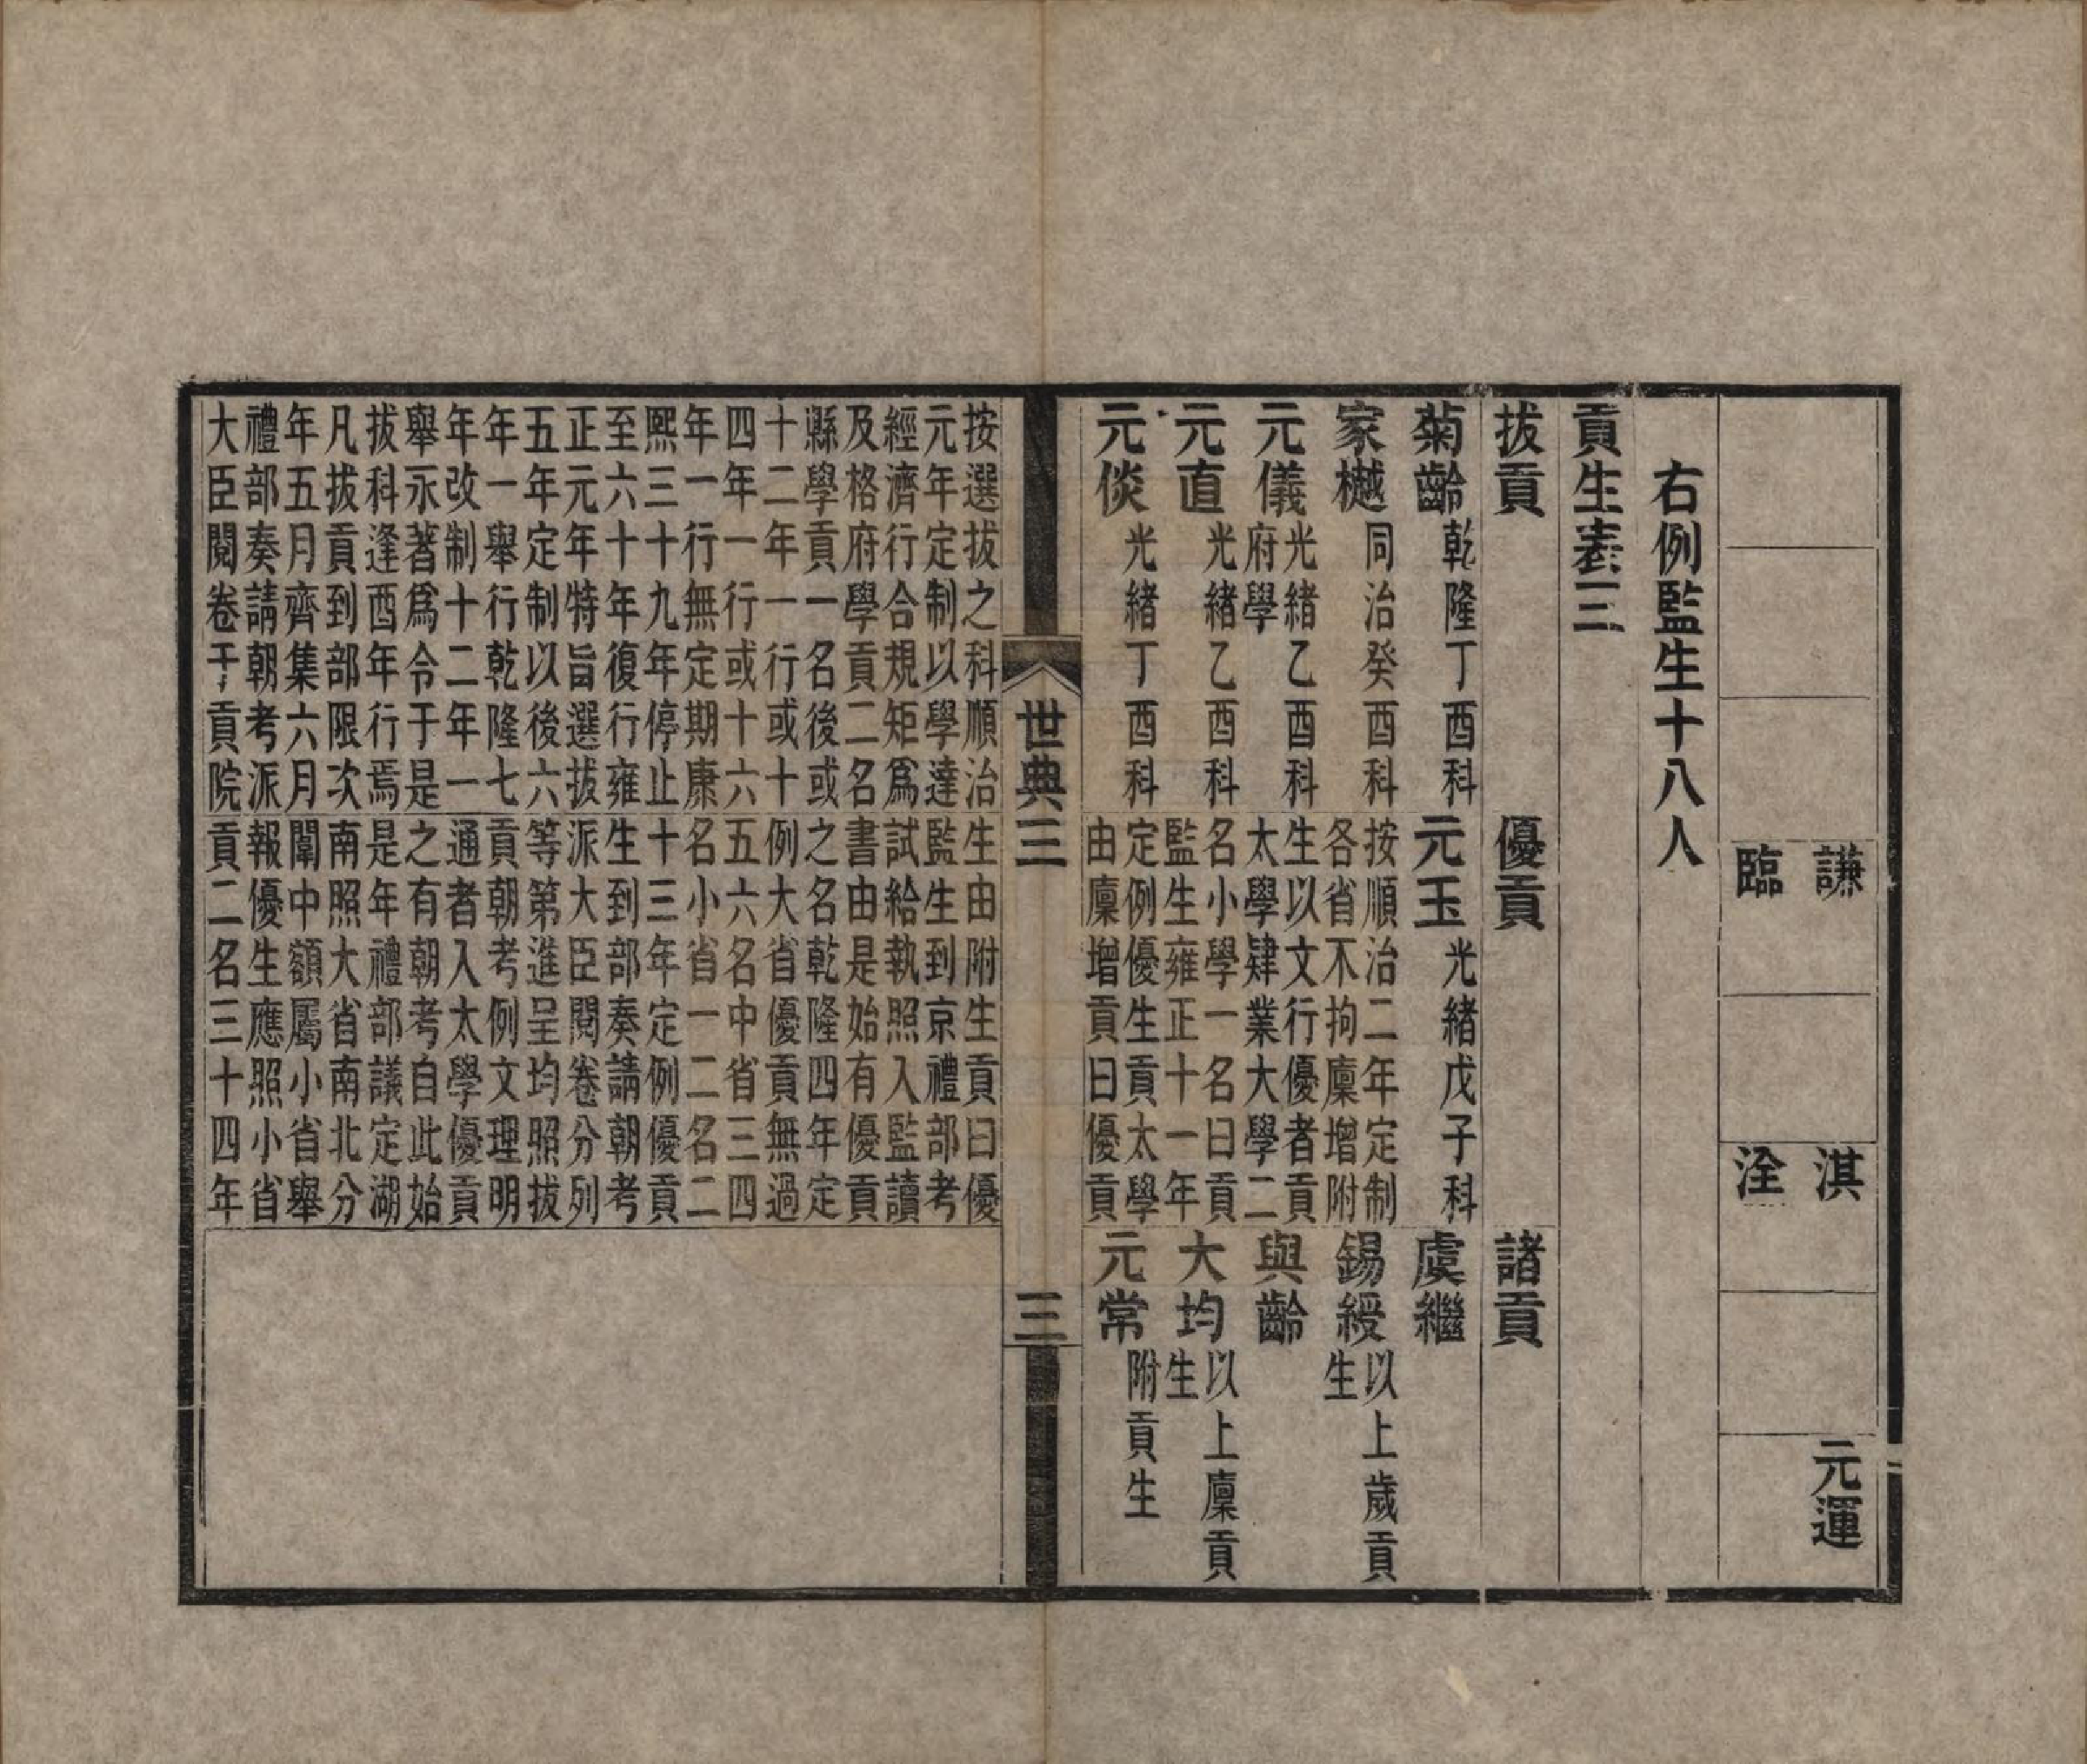 謙 淇 元運
臨 洤
右例監生十八人
貢生表三
拔貢
菊齡 乾隆丁酉科
家樾 同治癸酉科
元儀 光緒乙酉科
府學
元直 光緒乙酉科
元倓 光緒丁酉科
優貢
元玉 光緒戊子科
按順治二年定制
各省不拘廩增附
生以文行優者貢
太學肄業大學二
名小學一名曰貢
監生雍正十一年
定例優生貢太學
由廩增貢曰優貢
諸貢
虞繼
錫綬 以上歲貢
生
與齡
大均 以上廩貢
生
元常 附貢生
世典三 三
按選拔之科順治
元年定制以學達
經濟行合規矩爲
及格府學貢二名
縣學貢一名後或
十二年一行或十
四年一行或十六
年一行無定期康
熙三十九年停止
至六十年復行雍
正元年特旨選拔
五年定制以後六
年一舉行乾隆七
年改制十二年一
舉永著爲令于是
拔科逢酉年行焉
凡拔貢到部限次
年五月齊集六月
禮部奏請朝考派
大臣閱卷于貢院
生由附生貢曰優
監生到京禮部考
試給執照入監讀
書由是始有優貢
之名乾隆四年定
例大省優貢無過
五六名中省三四
名小省一二名二
十三年定例優貢
生到部奏請朝考
派大臣閱卷分列
等第進呈均照拔
貢朝考例文理明
通者入太學優貢
之有朝考自此始
是年禮部議定湖
南照大省南北分
闈中額屬小省舉
報優生應照小省
貢二名三十四年